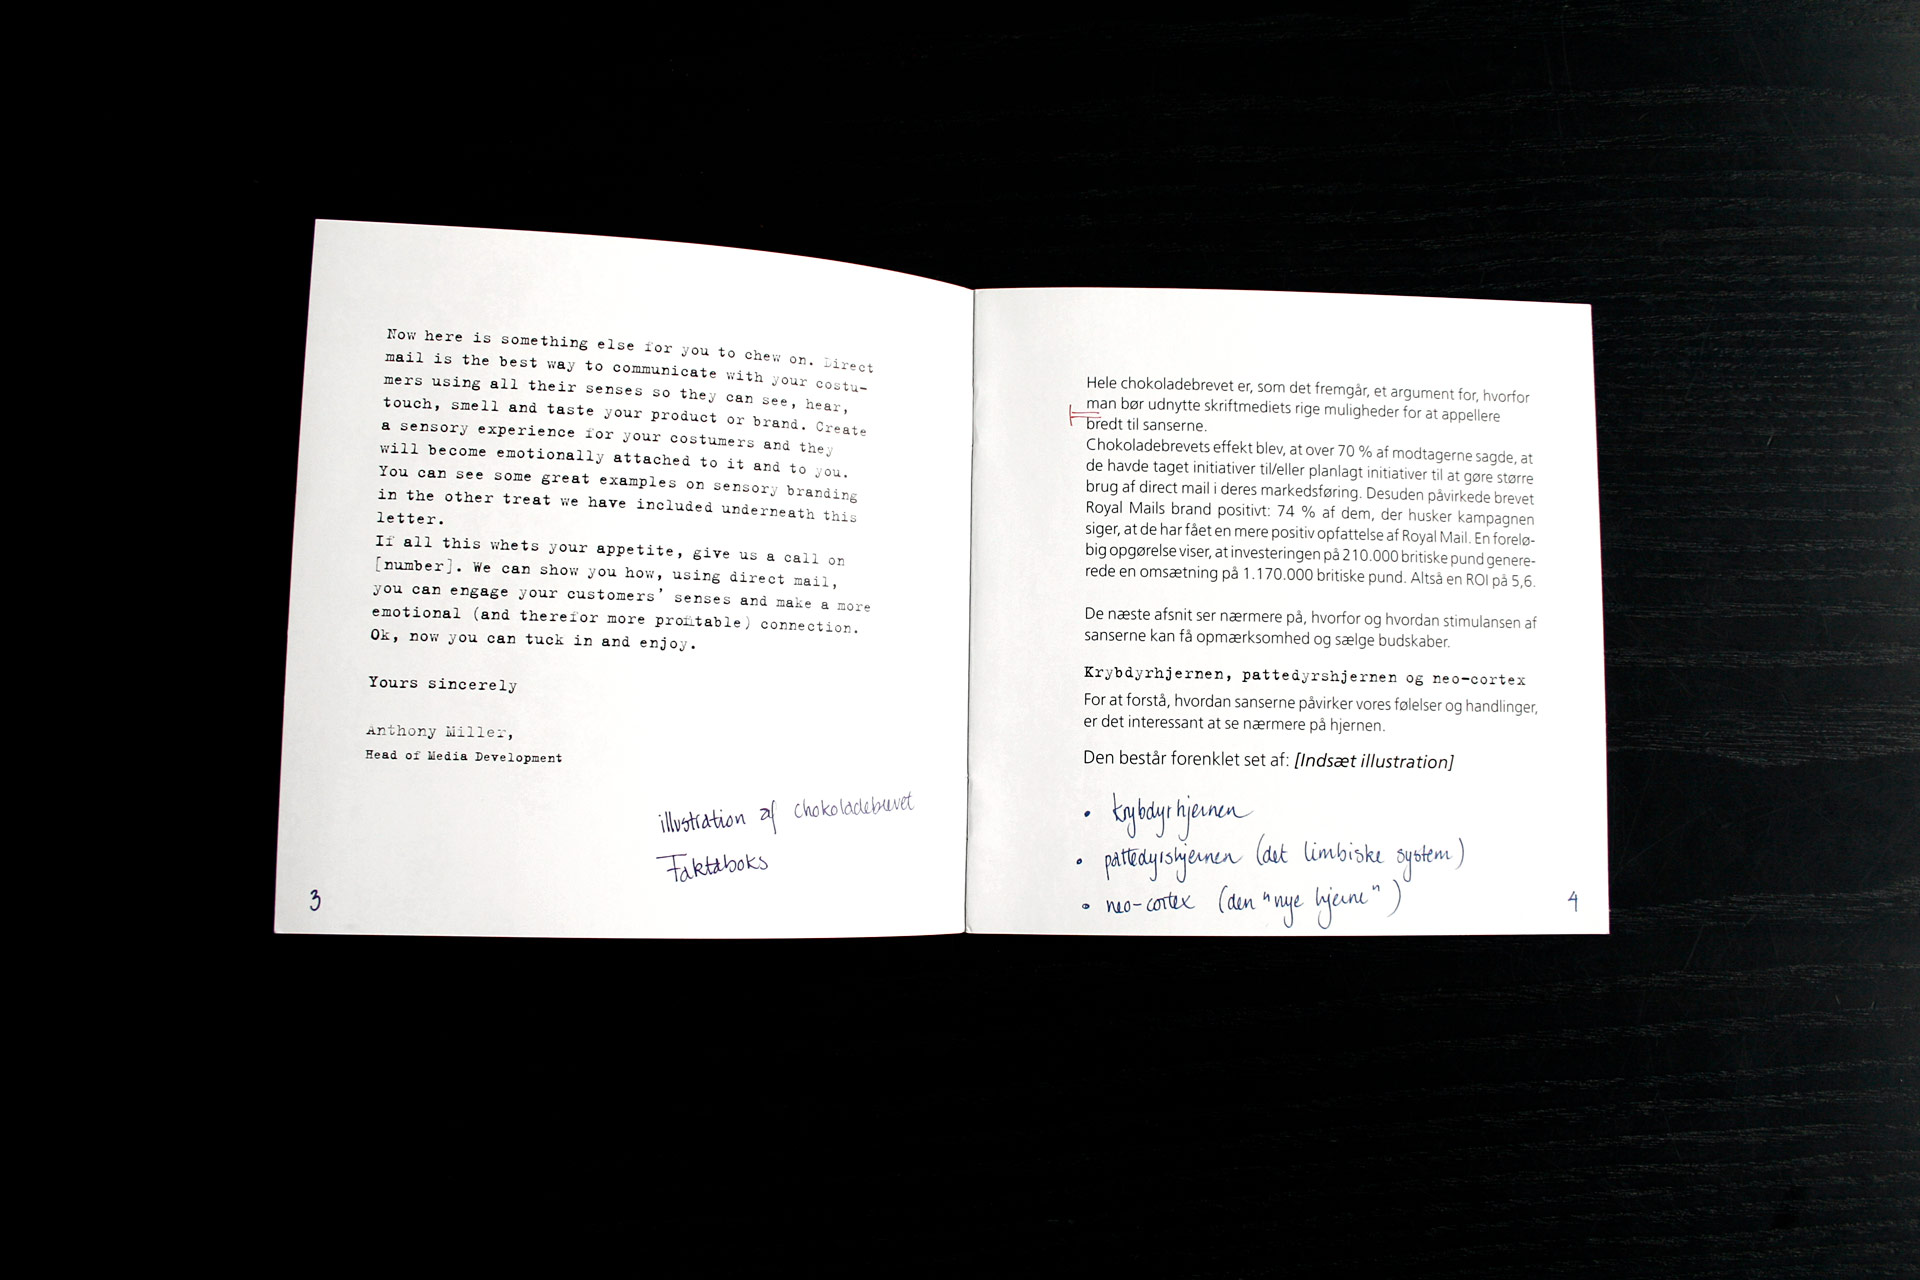 Now here is something else for you to chew on. Direct
mail is the best way to communicate with your costu-
mers using all their senses so they can see, hear,
touch, smell and taste your product or brand. Create
a sensory experience for your costumers and they
will become emotionally attached to it and to you.
You can see some great examples on sensory branding
in the other treat we have included underneath this
letter.
If all this whets your appetite, give us a call on
[number]. We can show you how, using direct mail,
you can engage your customers' senses and make a more
emotional (and therefor more profitable) connection.
Ok, now you can tuck in and enjoy.
Yours sincerely
Anthony Miller,
Head of Media Development
illustration af chokoladebrevet
Faktaboks
3
Hele chokoladebrevet er, som det fremgår, et argument for, hvorfor
man bør udnytte skriftmediets rige muligheder for at appellere
bredt til sanserne.
Chokoladebrevets effekt blev, at over 70 % af modtagerne sagde, at
de havde taget initiativer til/eller planlagt initiativer til at gøre større
brug af direct mail i deres markedsføring. Desuden påvirkede brevet
Royal Mails brand positivt: 74 % af dem, der husker kampagnen
siger, at de har fået en mere positiv opfattelse af Royal Mail. En forelø-
big opgørelse viser, at investeringen på 210.000 britiske pund genere-
rede en omsætning på 1.170.000 britiske pund. Altså en ROI på 5,6.
De næste afsnit ser nærmere på, hvorfor og hvordan stimulansen af
sanserne kan få opmærksomhed og sælge budskaber.
Krybdyrhjernen, pattedyrshjernen og neo-cortex
For at forstå, hvordan sanserne påvirker vores følelser og handlinger,
er det interessant at se nærmere på hjernen.
Den består forenklet set af: [Indsæt illustration]
• krybdyrhjernen
• pattedyrshjernen (det limbiske system)
• neo-cortex (den "nye hjerne")
4